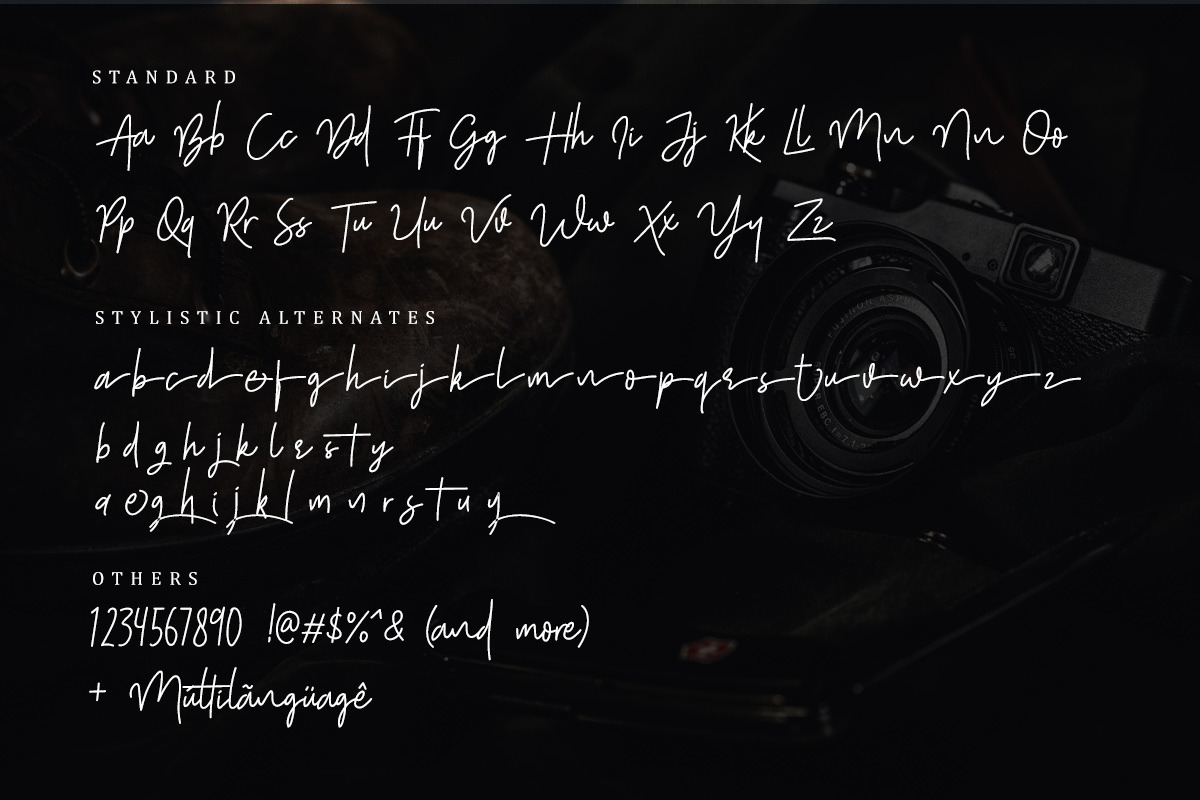 STANDARD
Aa Bb Cc Dd Ff Gg Hh Ii Jj Kk Ll Mm Nn Oo
Pp Qq Rr Ss Tu Uu Vv Ww Xx Yy Zz
STYLISTIC ALTERNATES
abcdefghijklmnopqrstuvwxyz
b d g h j k l r s t y
a e g h i j k l m n r s t u y
OTHERS
1234567890 !@#$%^& (and more)
+ Múltilãngüagê